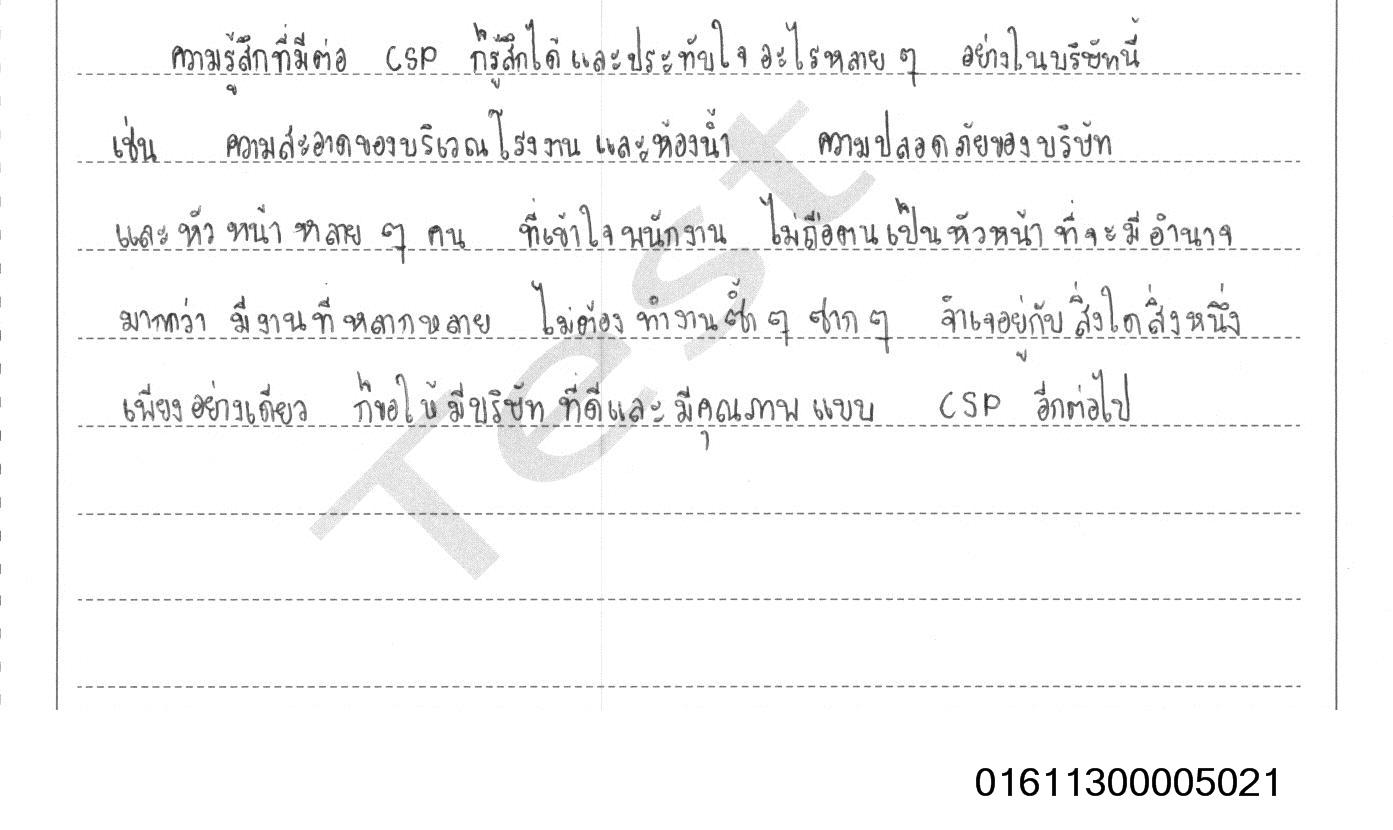 ความรู้สึกที่มีต่อ CSP ก็รู้สึกได้ และประทับใจ อะไรหลาย ๆ อย่างในบริษัทนี้
เช่น ความสะอาดของบริเวณโรงงาน และห้องน้ำ ความปลอดภัยของบริษัท
และหัวหน้าหลาย ๆ คน ที่เข้าใจพนักงาน ไม่ถือตนเป็นหัวหน้าที่จะมีอำนาจ
มากกว่า มีงานที่หลากหลาย ไม่ต้องทำงานซ้ำ ๆ ซาก ๆ จำเจอยู่กับสิ่งใดสิ่งหนึ่ง
เพียงอย่างเดียว ก็ขอให้มีบริษัท ที่ดีและมีคุณภาพแบบ CSP อีกต่อไป
Test
01611300005021